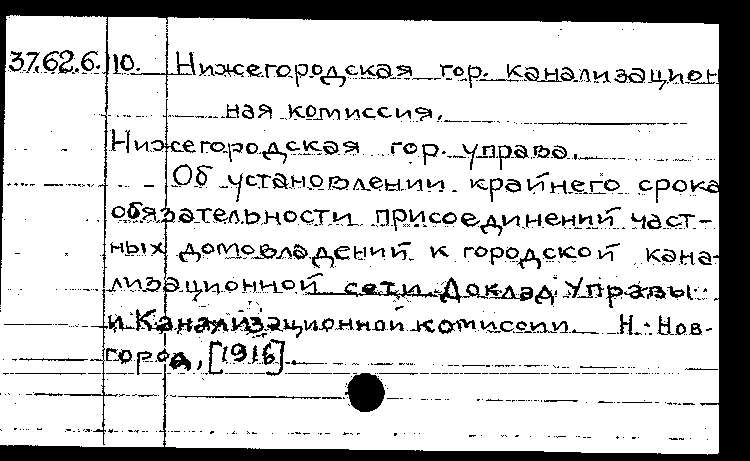 37.62.6. 10. Нижегородская гор. канализацион
ная комиссия.
Нижегородская гор. управа.
Об установлении крайнего срока
обязательности присоединений част-
ных домовладений к городской кана-
лизационной сети. Доклад Управы
и Канализационной комиссии. Н.-Нов-
город, [1916].